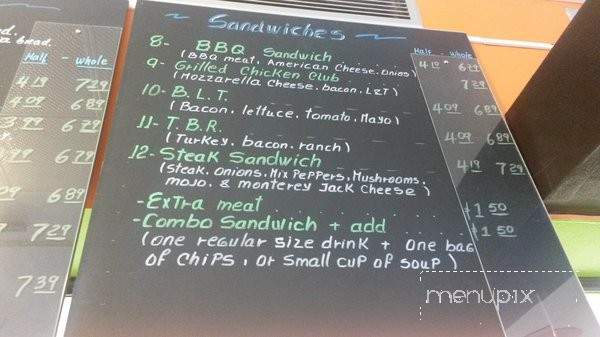 ~ Sandwiches ~
Half - Whole
8- BBQ Sandwich
(BBQ meat, American Cheese, Onions)
4 19 6 79
9- Grilled Chicken Club
(Mozzarella Cheese, bacon, L&T)
7 29
10- B.L.T.
(Bacon, lettuce, tomato, Mayo)
4 09 6 89
11- T.B.R.
(Turkey, bacon, ranch)
4 09 6 89
12- Steak Sandwich
(Steak, Onions, Mix Peppers, Mushrooms,
mojo, & monterey Jack Cheese)
4 19 7 29
- Extra meat
$1 50
- Combo Sandwich + add
$1 50
(one regular size drink + one bag
of chips, or small cup of soup)
bread.
Half - Whole
4 19 7 29
4 09 6 89
3 99 6 79
6 79
6 89
7 29
7 39
menupix